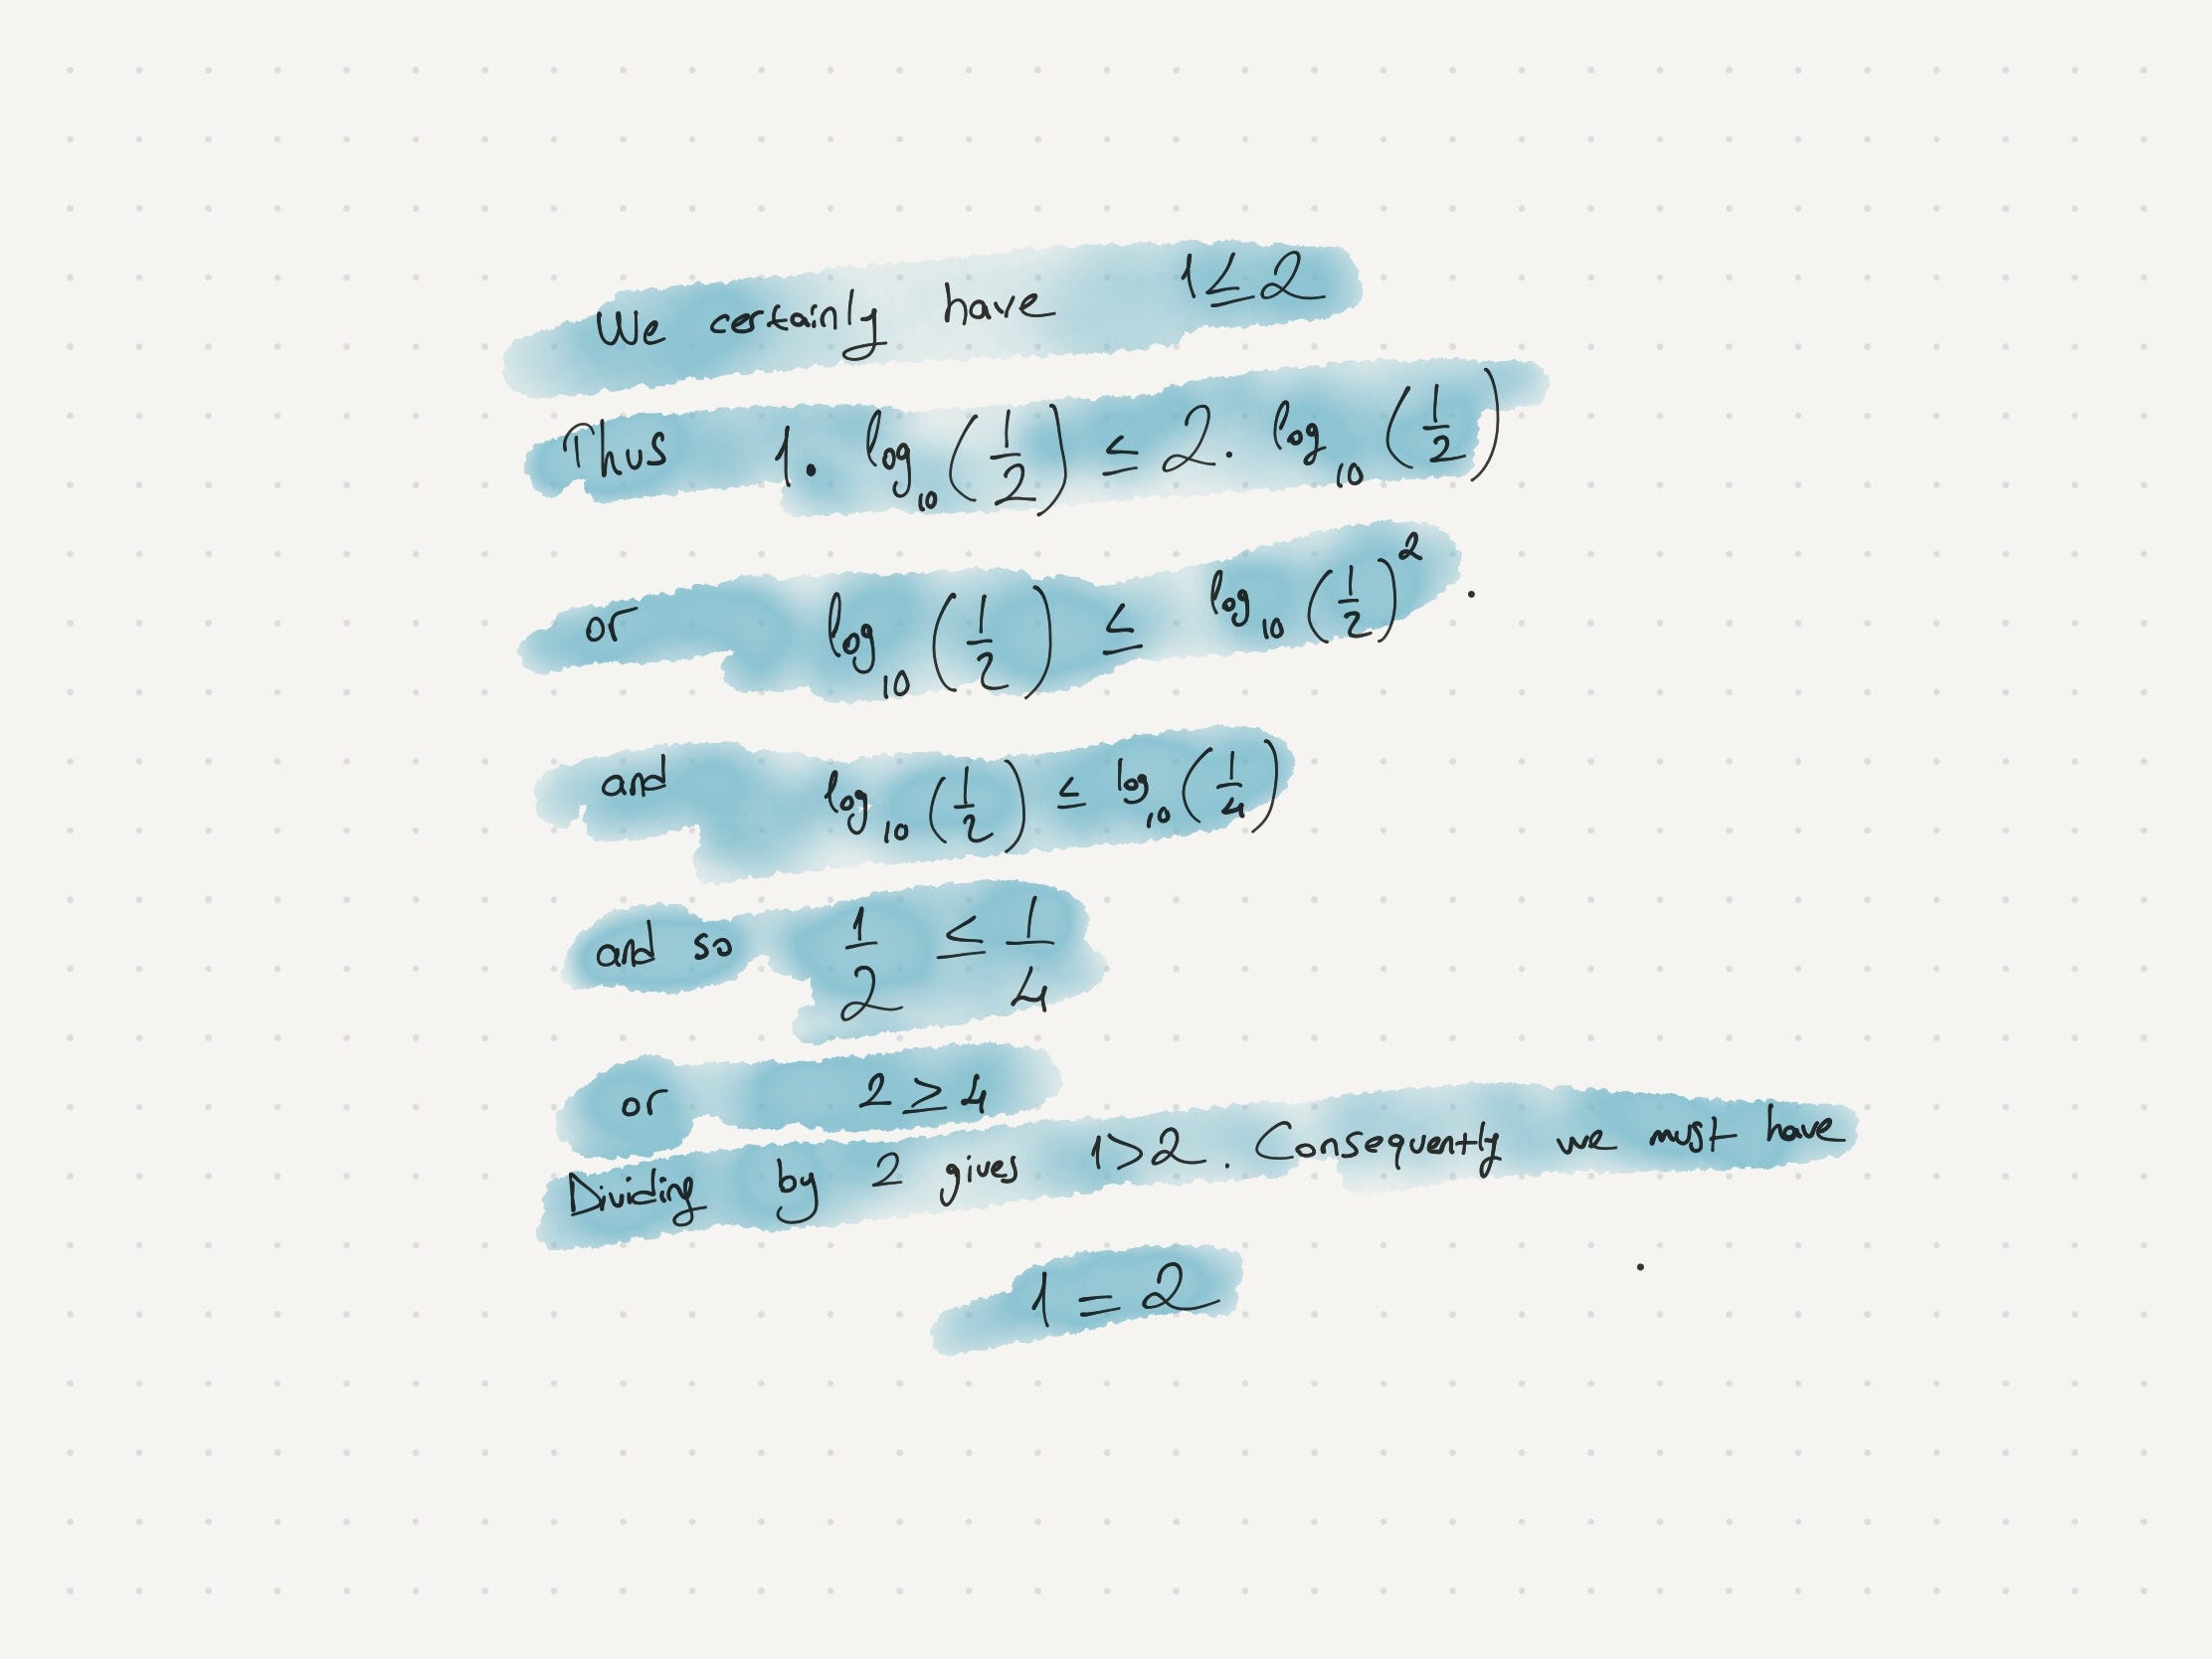 We certainly have 1 ≤ 2
Thus 1. log₁₀(1/2) ≤ 2. log₁₀(1/2)
or log₁₀(1/2) ≤ log₁₀(1/2)² .
and log₁₀(1/2) ≤ log₁₀(1/4)
and so 1/2 ≤ 1/4
or 2 ≥ 4
Dividing by 2 gives 1>2. Consequently we must have
1 = 2